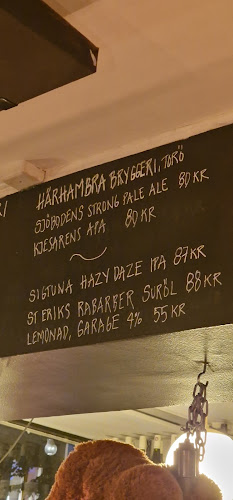 HÄRHAMBRA BRYGGERI, TORÖ
SJÖBODENS STRONG PALE ALE 80 KR
KJESARENS APA 80 KR
SIGTUNA HAZY DAZE IPA 87 KR
ST ERIKS RABARBER SURÖL 88 KR
LEMONAD, GARAGE 4% 55 KR